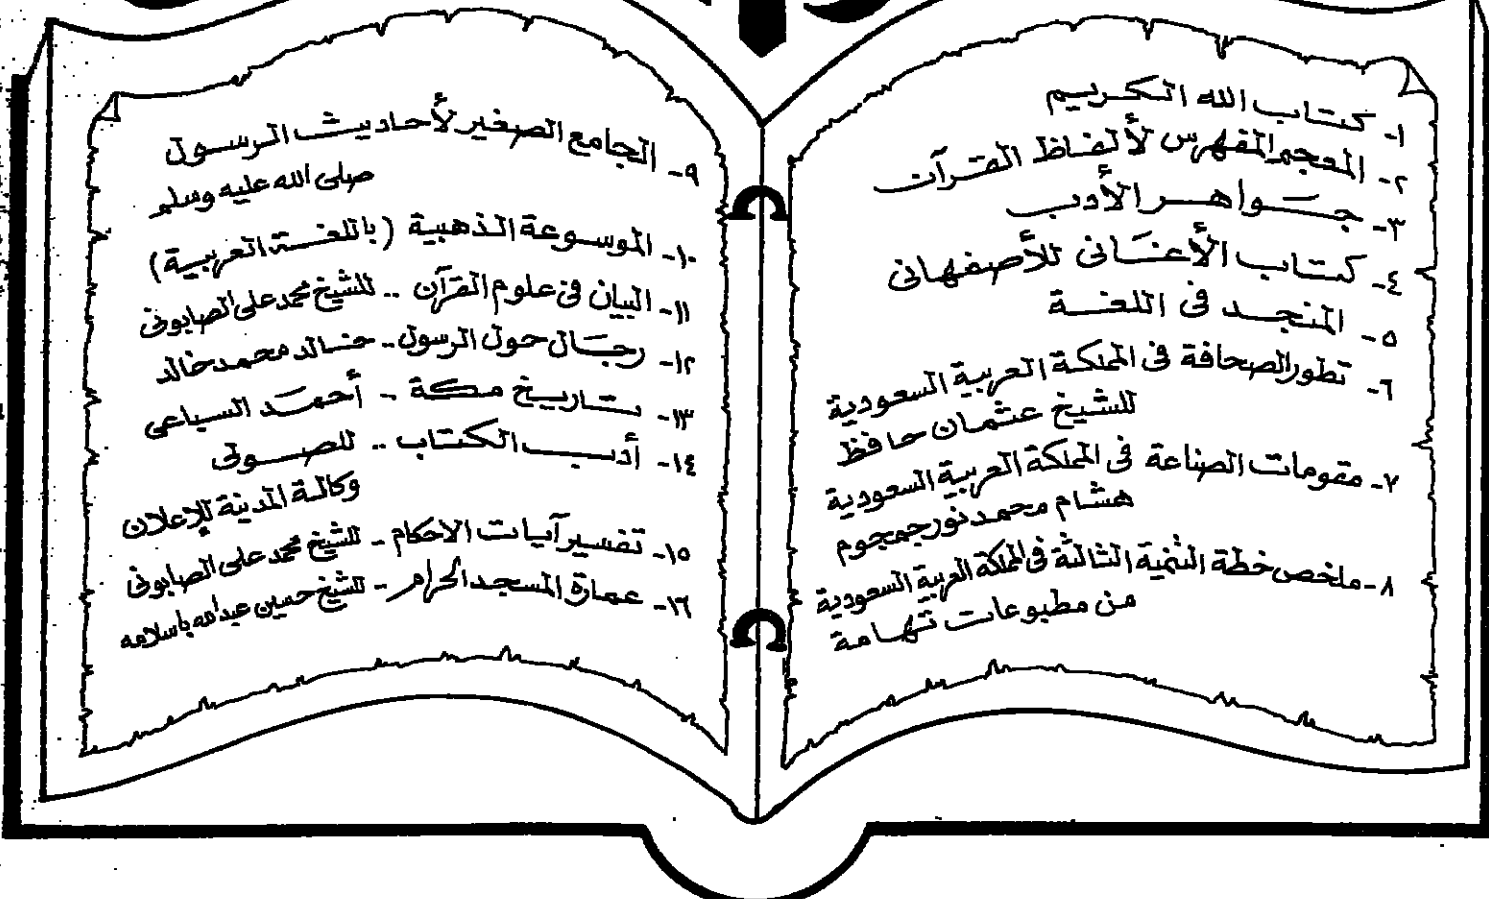 ١- كتاب الله الكريم
٢- المعجم المفهرس لألفاظ القرآن
٣- جواهر الأدب
٤- كتاب الأغاني للأصفهاني
٥- المنجد في اللغة
٦- تطور الصحافة في المملكة العربية السعودية
للشيخ عثمان حافظ
٧- مقومات الصناعة في المملكة العربية السعودية
هشام محمد نور جمجوم
٨- ملخص خطة التنمية الثالثة في المملكة العربية السعودية
من مطبوعات تهامة
٩- الجامع الصغير لأحاديث الرسول
صلى الله عليه وسلم
١٠- الموسوعة الذهبية (باللغة العربية)
١١- البيان في علوم القرآن .. للشيخ محمد على الصابوني
١٢- رجال حول الرسول .. خالد محمد خالد
١٣- تاريخ مكة - أحمد السباعي
١٤- أدب الكتاب .. للصولى
وكالة المدينة للإعلان
١٥- تفسير آيات الاحكام - للشيخ محمد على الصابوني
١٦- عمارة المسجد الحرام - للشيخ حسين عبدالله باسلامه